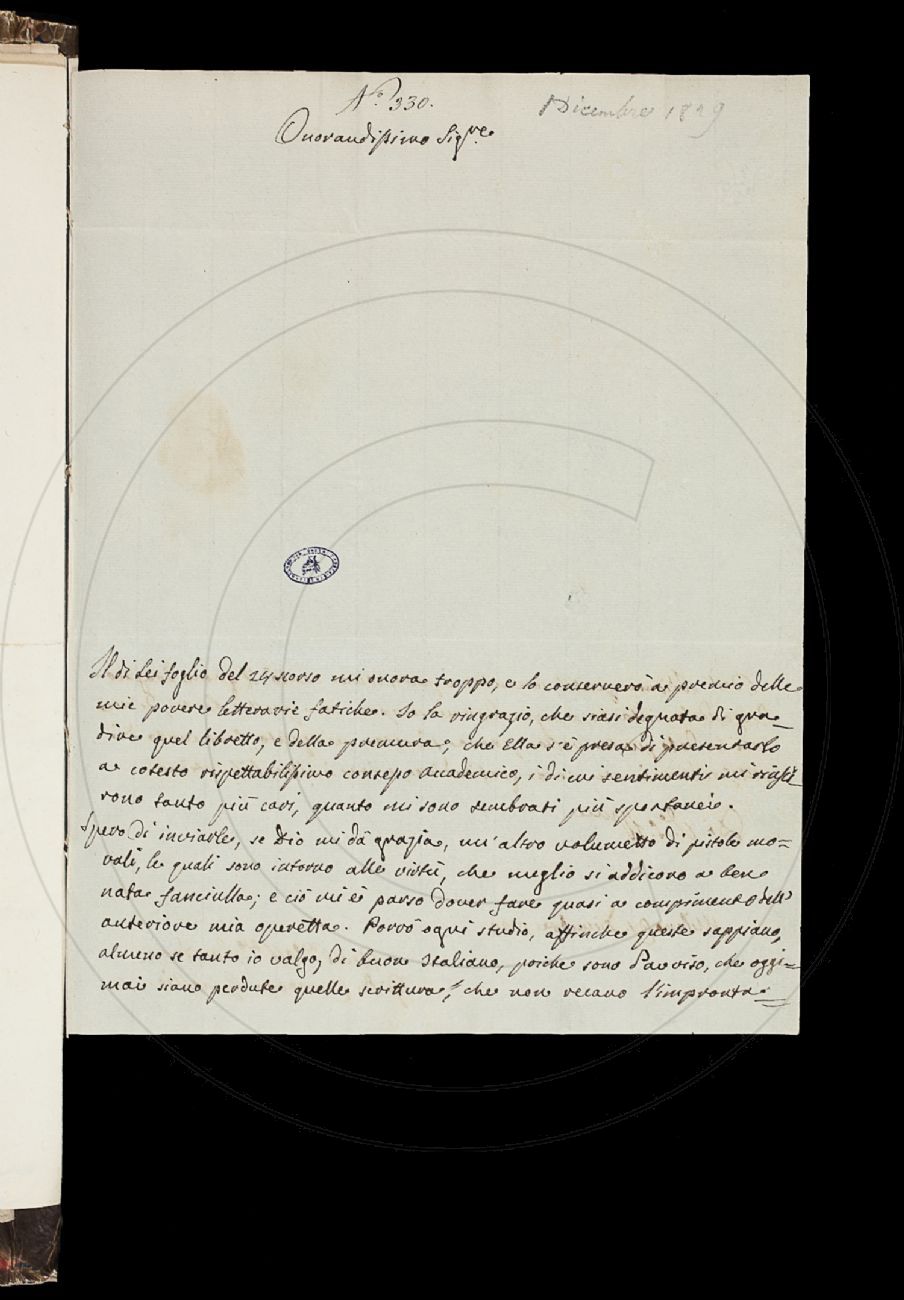 N.° 330.
Dicembre 1829
Onorandissimo Sig.re
Il di Lei foglio del 24 scorso mi onora troppo, e lo conserverò a premio delle
mie povere letterarie fatiche. Io la ringrazio, che siasi degnata di gra_
dire quel libretto, e della premura, che Ella s'è presa di presentarlo
a cotesto rispettabilissimo consesso accademico, i di cui sentimenti mi riusci_
rono tanto più cari, quanto mi sono sembrati più spontanei.
Spero di inviarle, se Dio mi dà grazia, un'altro volumetto di pistole mo=
rali, le quali sono intorno alle virtù, che meglio si addicono a ben
nata fanciulla; e ciò mi è parso dover fare quasi a compimento dell'
anteriore mia operetta. Porrò ogni studio, affinche queste sappiano,
almeno se tanto io valgo, di buon Italiano, poiche sono d'avviso, che oggi=
mai siano perdute quelle scritture, che non recano l'impronta